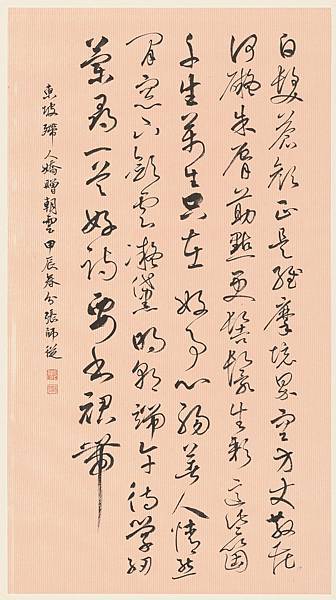 白髮蒼顏正是維摩境界空方丈散花
何礙朱脣筯點更髻鬟生彩這些箇
千生萬生只在好事心腸著人情態
閒窗下斂雲凝黛明朝端午待學紉
蘭尋一首好詩要書裙帶
東坡殢人嬌贈朝雲甲辰春分張師從